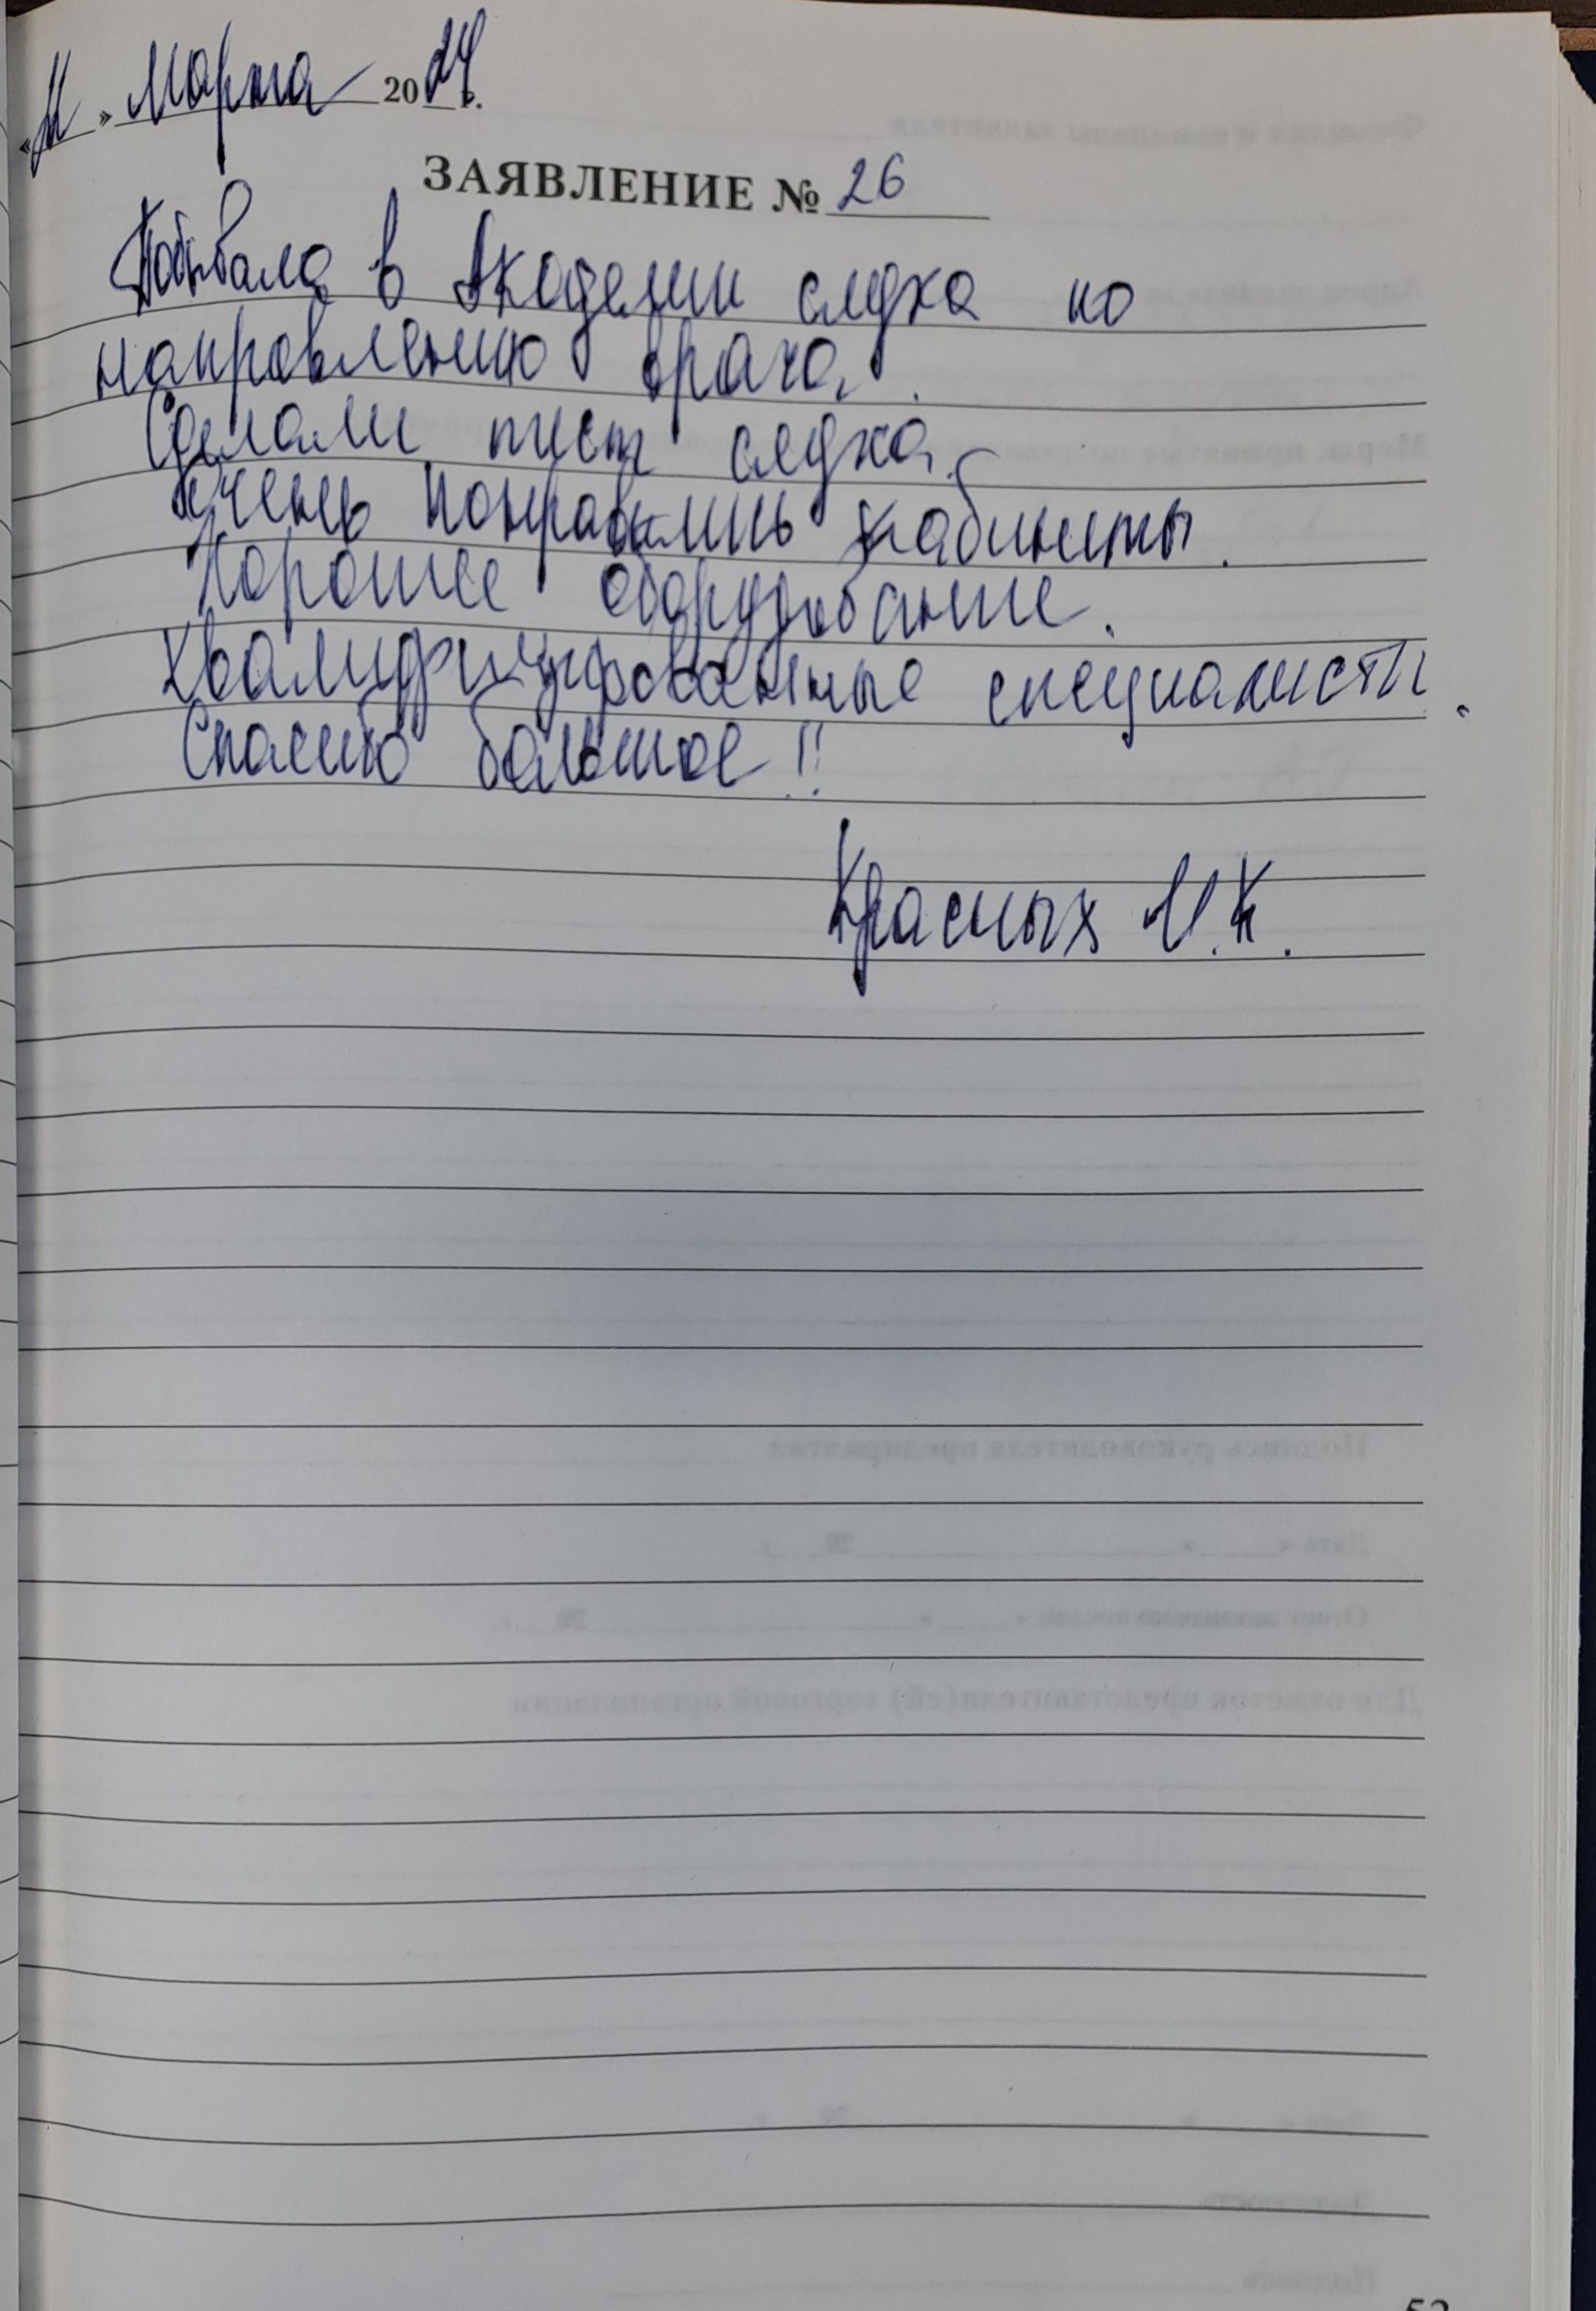 «11» Марта 2024 г.
ЗАЯВЛЕНИЕ № 26
Побывала в Академии слуха по
направлению врача.
Сделали тист слуха.
Очень понравились кабинеты.
Хорошее оборудование.
Квалифицированные специалисты.
Спасибо большое!!
Красных И.К.